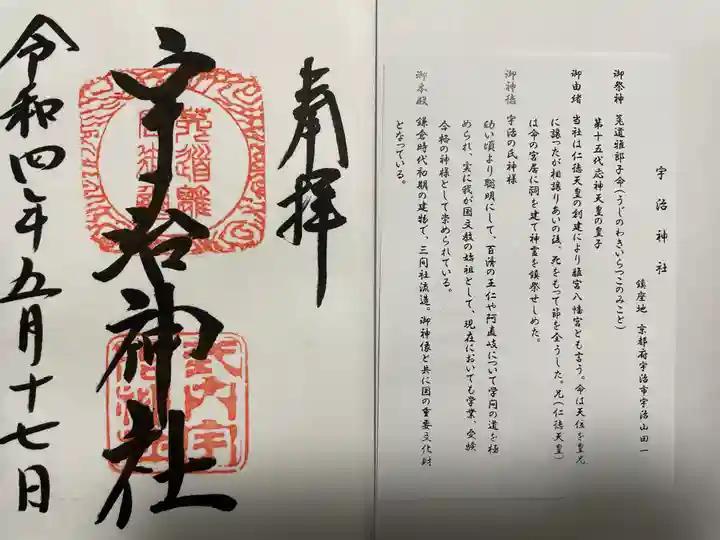 奉拝
宇治神社
令和四年五月十七日
宇治神社
鎮座地 京都府宇治市宇治山田一
御祭神 菟道稚郎子命(うじのわきいらつこのみこと)
第十五代応神天皇の皇子
御由緒 当社は仁徳天皇の創建により離宮八幡宮とも言う。命は天位を皇兄
に譲ったが相譲りあいの後、死をもって節を全うした。兄(仁徳天皇)
は命の宮居に祠を建て神霊を鎮祭せしめた。
御神徳 宇治の氏神様
幼い頃より聡明にして、百済の王仁や阿直岐について学問の道を極
められ、実に我が国文教の始祖として、現在においても学業、受験
合格の神様として崇められている。
御本殿 鎌倉時代初期の建物で、三間社流造。御神像と共に国の重要文化財
となっている。